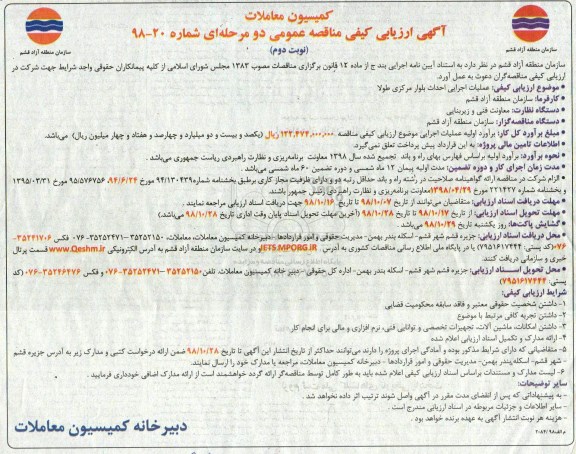 کمیسیون معاملات
آگهی ارزیابی کیفی مناقصه عمومی دو مرحله‌ای شماره ۲۰-۹۸
(نوبت دوم)
سازمان منطقه آزاد قشم
سازمان منطقه آزاد قشم
سازمان منطقه آزاد قشم در نظر دارد به استناد آیین نامه اجرایی بند ج از ماده ۱۲ قانون برگزاری مناقصات مصوب ۱۳۸۳ مجلس شورای اسلامی از کلیه پیمانکاران حقوقی واجد شرایط جهت شرکت در
ارزیابی کیفی مناقصه‌گران دعوت به عمل آورد.
• موضوع ارزیابی کیفی: عملیات اجرایی احداث بلوار مرکزی طولا
• کارفرما: سازمان منطقه آزاد قشم
• دستگاه نظارت: معاونت فنی و زیربنایی
• دستگاه مناقصه‌گزار: سازمان منطقه آزاد قشم
• مبلغ برآورد کل کار: برآورد اولیه عملیات اجرایی موضوع ارزیابی کیفی مناقصه ۱۲۲,۴۷۴,۰۰۰,۰۰۰ ریال (یکصد و بیست و دو میلیارد و چهارصد و هفتاد و چهار میلیون ریال) می‌باشد.
• اطلاعات تامین مالی پروژه: به این قرارداد پیش پرداخت تعلق نمی‌گیرد.
• نحوه برآورد: برآورد اولیه براساس فهارس بهای راه و باند تجمیع شده سال ۱۳۹۸ معاونت برنامه‌ریزی و نظارت راهبردی ریاست جمهوری می‌باشد.
• مدت زمان اجرای کار و دوره تضمین: مدت اولیه پیمان ۱۲ ماه شمسی و دوره تضمین ۶۰ ماه شمسی می‌باشد.
• الزام شرکت در مناقصه ارائه گواهینامه صلاحیت در رشته راه و باند حداقل رتبه دو و دارای ظرفیت مجاز کاری برطبق بخشنامه شماره ۹۴/۱۳۰۴۳۹ مورخ ۹۴/۶/۲۴، ۹۵/۵۷۶۷۵۶ مورخ ۱۳۹۵/۰۳/۳۱
و بخشنامه شماره ۲۲۱۴۲۷ مورخ ۱۳۹۸/۰۴/۲۹ معاونت برنامه‌ریزی و نظارت راهبردی رئیس جمهور باشند.
• مهلت دریافت اسناد ارزیابی: متقاضیان می‌توانند از تاریخ ۹۸/۱۰/۰۷ تا تاریخ ۹۸/۱۰/۱۶ جهت دریافت اسناد ارزیابی مراجعه نمایند.
• مهلت تحویل اسناد ارزیابی: از تاریخ ۹۸/۱۰/۱۷ تا تاریخ ۹۸/۱۰/۲۸ (آخرین مهلت تحویل اسناد پایان وقت اداری تاریخ ۹۸/۱۰/۲۸ می‌باشد.)
• گشایش پاکت‌ها: روز یکشنبه تاریخ ۹۸/۱۰/۲۹ می‌باشد.
• محل دریافت اسناد ارزیابی: جزیره قشم شهر قشم- اسکله بندر بهمن- مدیریت حقوقی و امور قراردادها- دبیرخانه کمیسیون معاملات، ۳۵۲۵۲۱۵۰ -۳۵۲۵۲۴۷۱-۰۷۶ فکس ۳۵۲۴۱۷۰۶-
۰۷۶ (کد پستی: ۷۹۵۱۶۱۷۴۴۴) یا در پایگاه ملی اطلاع رسانی مناقصات کشوری به آدرس IETS.MPORG.IR و در سایت سازمان منطقه آزاد قشم به آدرس الکترونیکی www.Qeshm.ir قسمت پرتال
خبری و سازمانی دریافت کنند.
• محل تحویل اسناد ارزیابی: جزیره قشم شهر قشم- اسکله بندر بهمن- اداره کل حقوقی - دبیر خانه کمیسیون معاملات، تلفن ۳۵۲۵۲۱۵۰ -۳۵۲۵۲۴۷۱-۰۷۶ و فکس ۳۵۲۴۶۴۷۶-۰۷۶ (کد
پستی: ۷۹۵۱۶۱۷۴۴۴)
شرایط ارزیابی کیفی:
۱- داشتن شخصیت حقوقی معتبر و فاقد سابقه محکومیت قضایی
۲- داشتن تجربه کافی مرتبط با موضوع
۳- داشتن امکانات، ماشین آلات، تجهیزات تخصصی و توانایی فنی، نرم افزاری و مالی برای انجام کار
۴- ارائه مدارک و تکمیل اسناد ارزیابی اعلام شده
۵- متقاضیانی که دارای شرایط مذکور بوده و آمادگی اجرای پروژه را دارند می‌توانند حداکثر از تاریخ انتشار این آگهی تا تاریخ ۹۸/۱۰/۲۸ ضمن ارائه درخواست کتبی و مدارک زیر به آدرس جزیره قشم
- شهر قشم- اسکله‌بندر بهمن- مدیریت حقوقی و امور قراردادها - دبیرخانه کمیسیون معاملات، مراجعه یا مدارک خود را ارسال نمایند.
۶- لیست مدارک و مستندات براساس اسناد ارزیابی کیفی اعلام شده باید به طور کامل توسط مناقصه‌گر ارائه گردد خواهشمند است از ارائه مدارک اضافی خودداری فرمایید.
سایر توضیحات:
- به پیشنهاداتی که پس از انقضای مدت مقرر در آگهی واصل شوند ترتیب اثر داده نخواهد شد.
- سایر اطلاعات و جزئیات مربوطه در اسناد ارزیابی مندرج است.
- هزینه هر نوبت انتشار آگهی به عهده برنده خواهد بود.
دبیرخانه کمیسیون معاملات